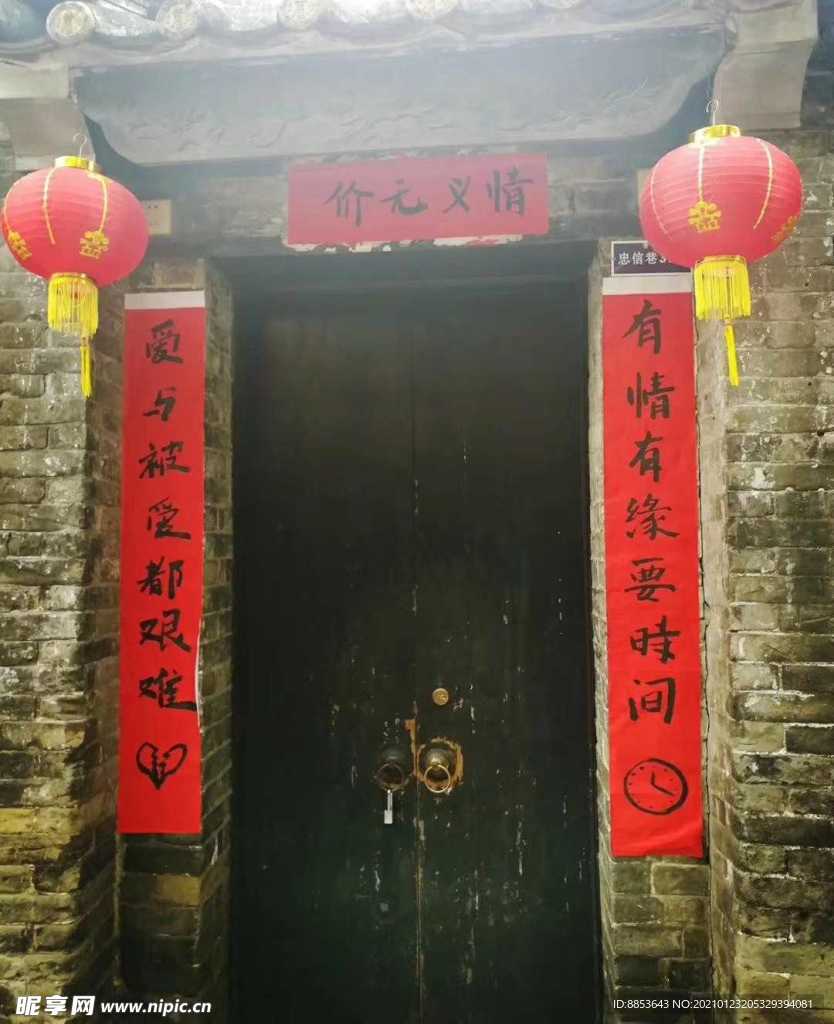 情义元价
有情有缘要时间
爱与被爱都艰难
忠信巷3
昵享网 www.nipic.cn
ID:8853643 NO:20210123205329394081